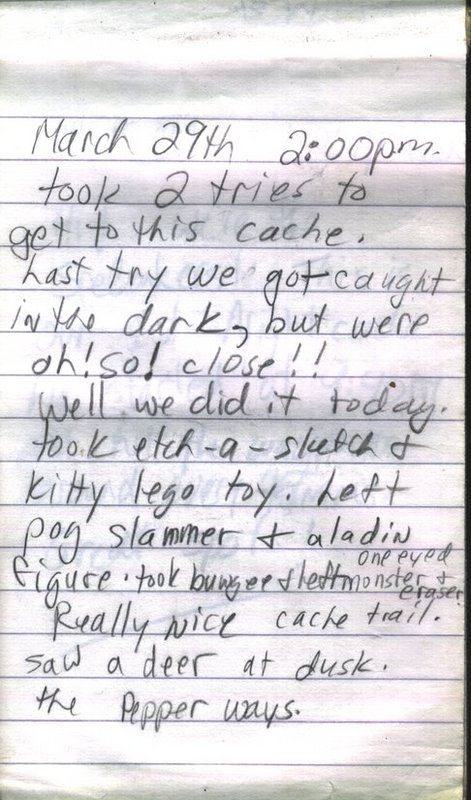 March 29th 2:00pm.
took 2 tries to
get to this cache.
Last try we got caught
in the dark, but were
oh! so! close!!
Well we did it today.
took etch-a-sketch &
kitty lego toy. Left
pog slammer & aladin
figure. took bungee & left one eyed monster & eraser.
Really nice cache trail.
saw a deer at dusk.
the Pepper ways.